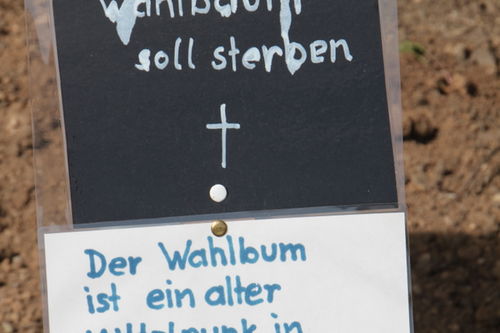 Wahlbaum
soll sterben
Der Wahlbum
ist ein alter
in